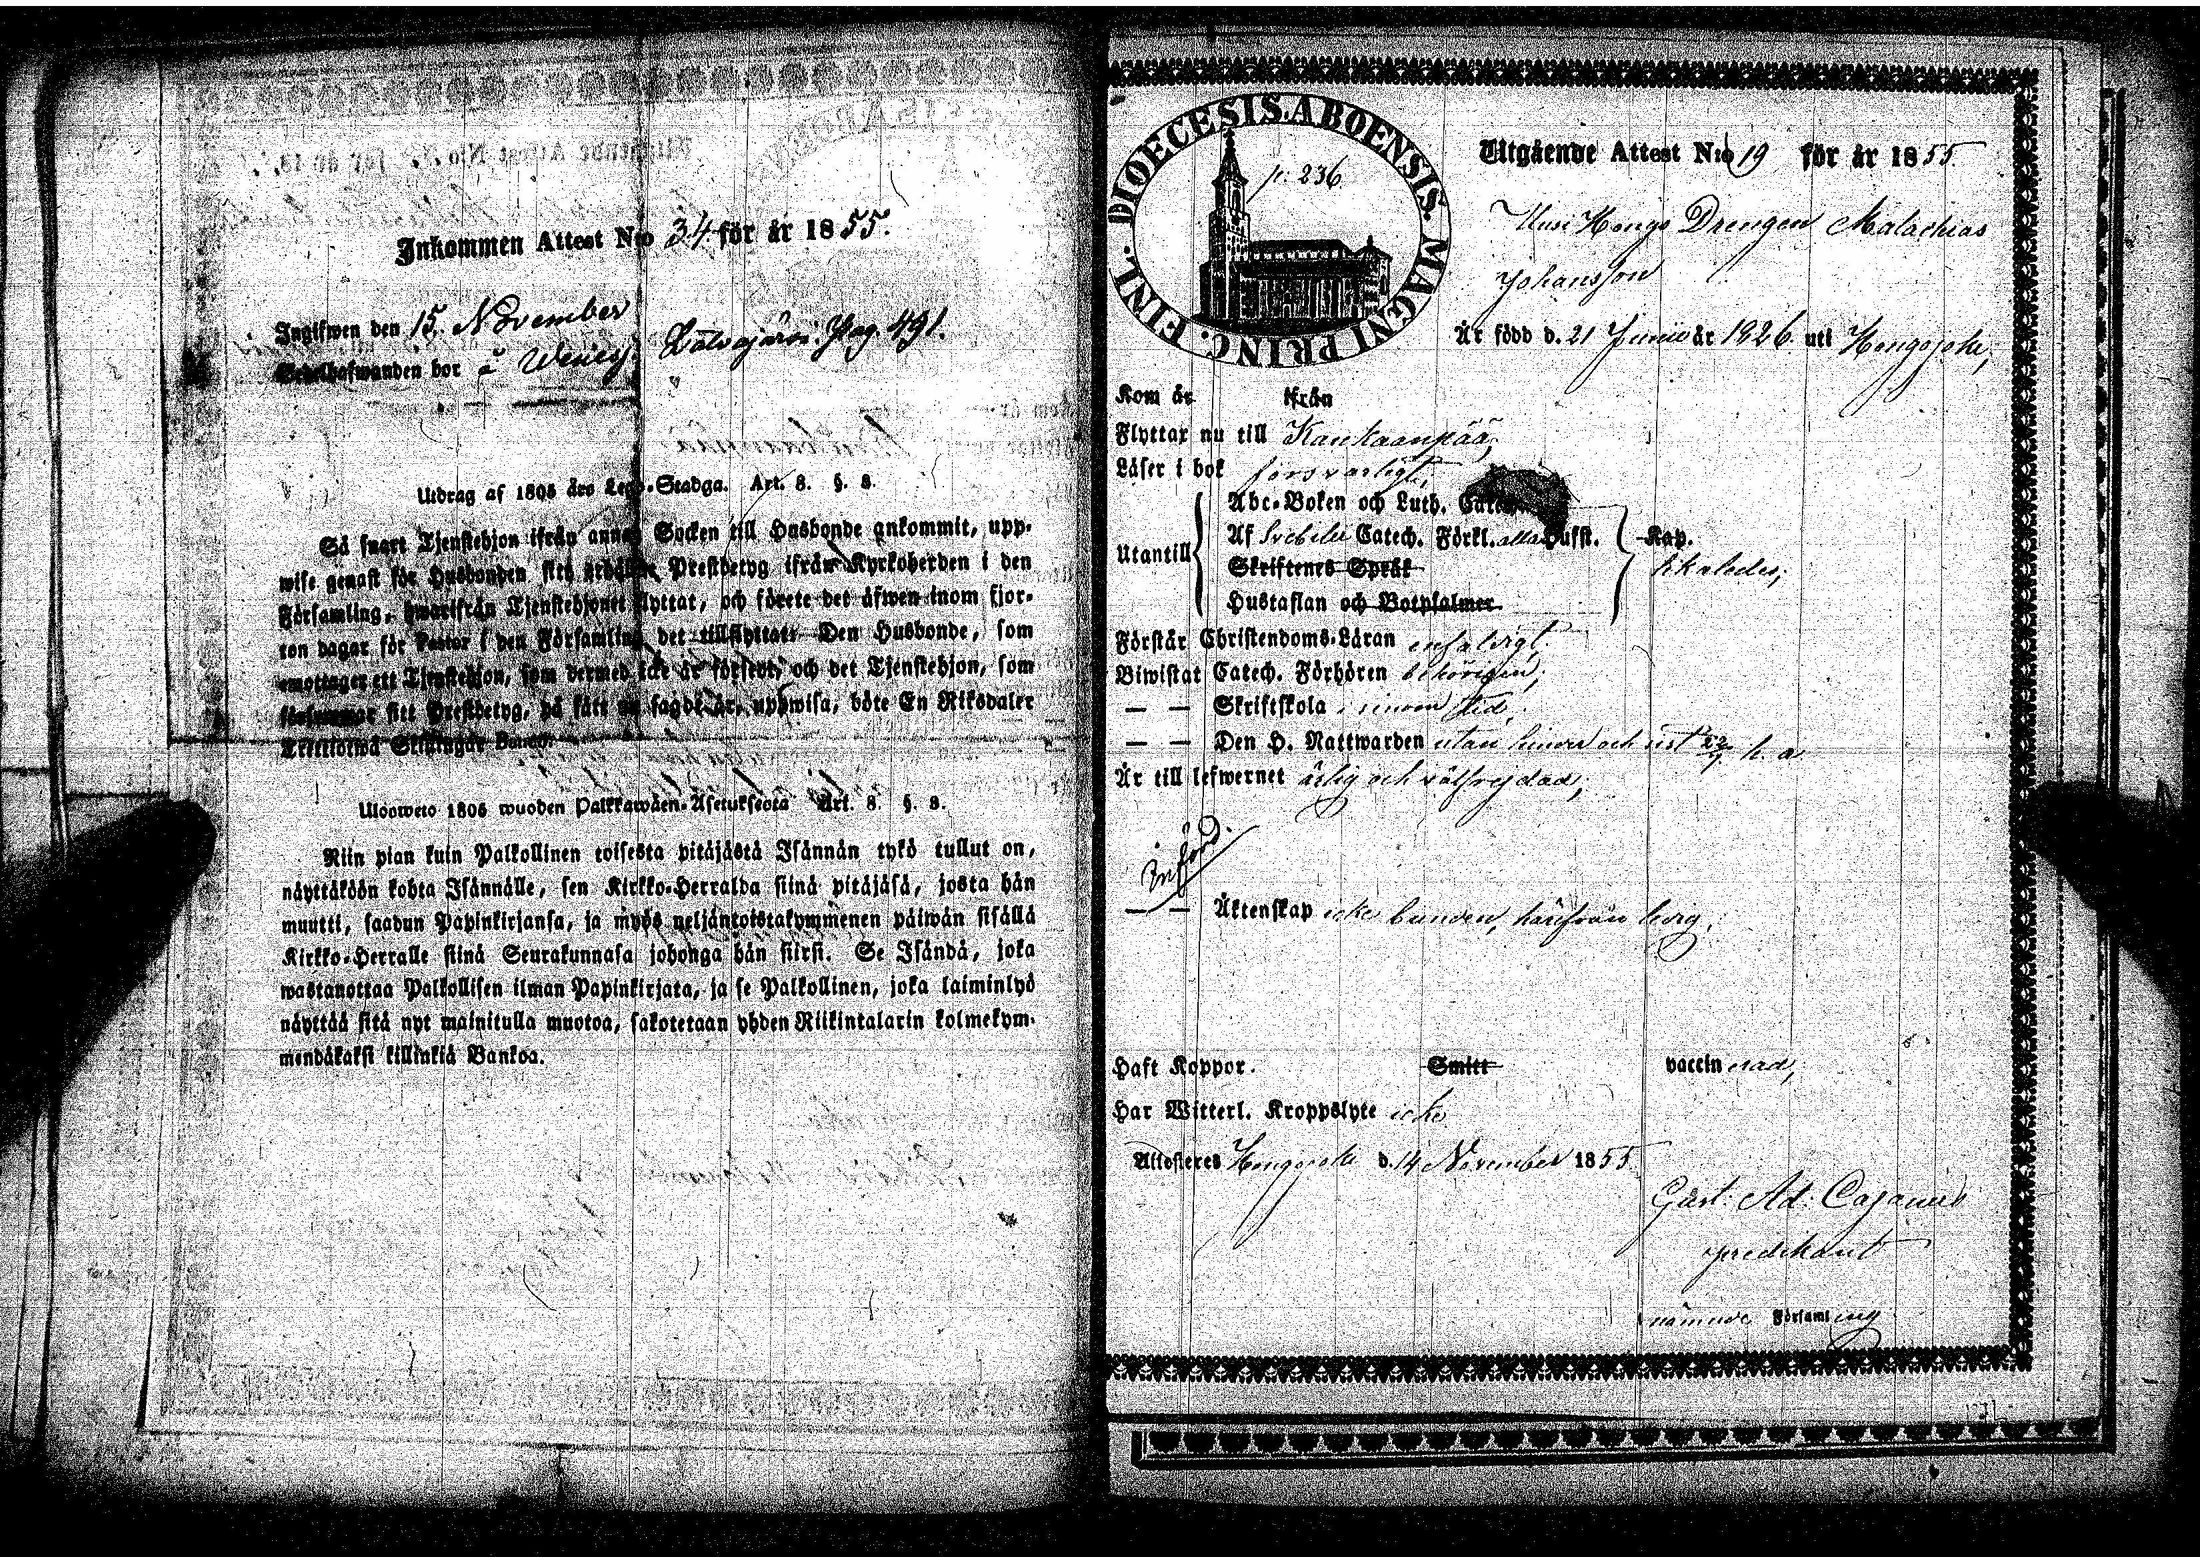 Inkommen Attest N:o 34 för år 1855.
Ingifwen den 15. November
bor å Wenesj. Wätväjärvi. Pag. 491.
Utdrag af 1805 års Lego-Stadga. Art. 8. §. 8.
Så snart Tjenstehjon ifrån annan Socken till Husbonde ankommit, upp-
wise genast för Husbonden sitt Prestbetyg ifrån Kyrkoherden i den
Församling, hwarifrån Tjenstehjonet flyttat, och förete det äfwen inom fjor-
ton dagar för Pastor i den Församling det tillflyttat. Den Husbonde, som
emottager ett Tjenstehjon, som dermed icke är försedt, och det Tjenstehjon, som
försummar sitt Prestbetyg, på sätt nu sagdt är, uppwisa, böte En Riksdaler
Trettiotwå Skillingar Banco.
Ulosweto 1805 wuoden Palkkawäen-Asetuksesta Art. 8. §. 8.
Niin pian kuin Palkollinen toisesta pitäjästä Isännän tykö tullut on,
näyttäköön kohta Isännälle, sen Kirkko-Herralda siinä pitäjäsä, josta hän
muutti, saadun Papinkirjansa, ja myös neljäntoistakymmenen päiwän sisällä
Kirkko-Herralle siinä Seurakunnasa johonga hän siirsi. Se Isändä, joka
wastanottaa Palkollisen ilman Papinkirjata, ja se Palkollinen, joka laiminlyö
näyttää sitä nyt mainitulla muotoa, sakotetaan yhden Riikintalarin kolmekym-
mendäkaksi killinkiä Bankos.
FINL. DIOECESIS. ABOENSIS. MAGNI PRINC.
p. 236
Utgående Attest N:o 19 för år 1855.
Uusi Hongo Drengen Malachias
Johansson
Är född d. 21 Junii år 1826. uti Hongojoki,
Kom år ifrån
Flyttar nu till Kankaanpää,
Läser i bok försvarligt,
Utantill
Abc-Boken och Luth. Catech.
Af Svebilii Catech. Förkl. alla Hufst. Kap.
Skriftenes Språk
Hustaflan och Botpsalmer
likaledes,
Förstår Christendoms-Läran enfaldigt.
Biwistat Catech. Förhören behörigen,
— — Skriftskola i sinom tid,
— — Den H. Nattwarden utan hinder och sist 22/7 h. a.
Är till lefwernet ärlig och välfrejdad,
Införd.
— — Äktenskap icke bunden, härifrån ledig.
Haft Koppor. Smitt vaccinerad,
Har Witterl. Kroppslyte icke
Attesteres Hongojoki d. 14 November 1855
Gust. Ad. Cajanus
predikant
i nämnde Församling.